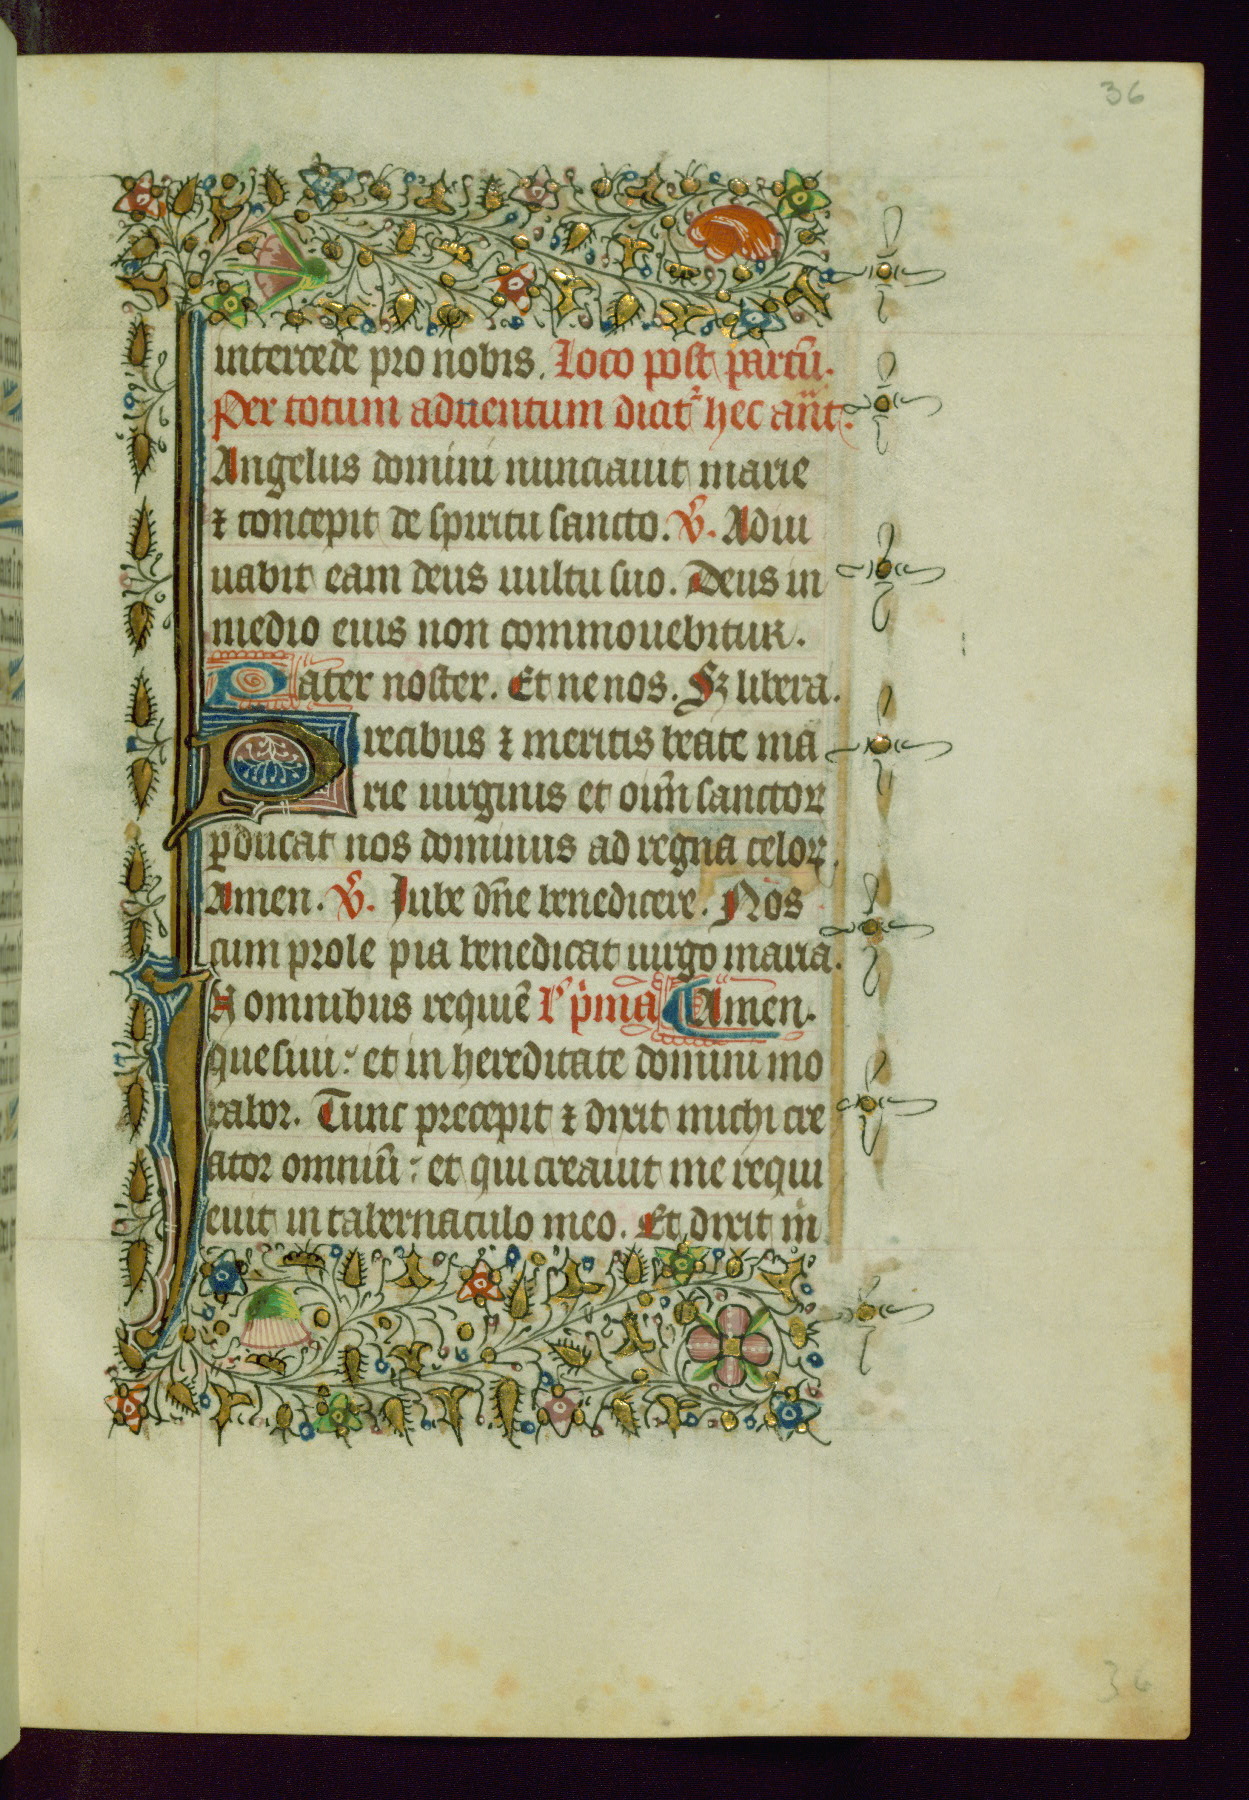 36
intercede pro nobis. Loco post partū.
Per totum aduentum dicit᷑ hec an̄t.
Angelus domini nunciauit marie
⁊ concepit de spiritu sancto. V̄. Adiu
uabit eam deus uultu suo. Deus in
medio eius non commouebitur.
Pater noster. Et ne nos. Sꝫ libera.
Precibus ⁊ meritis beate ma
rie uirginis et oīm sanctoꝝ
ꝑducat nos dominus ad regna celoꝝ.
Amen. V̄. Iube dn̄e benedicere. Nos
cum prole pia benedicat uirgo maria.
In omnibus requiē L᷑ p̄mā Amen.
quesiui: et in hereditate domini mo
rabor. Tunc precepit ⁊ dixit michi cre
ator omniū: et qui creauit me requi
euit in tabernaculo meo. Et dixit m̄
36